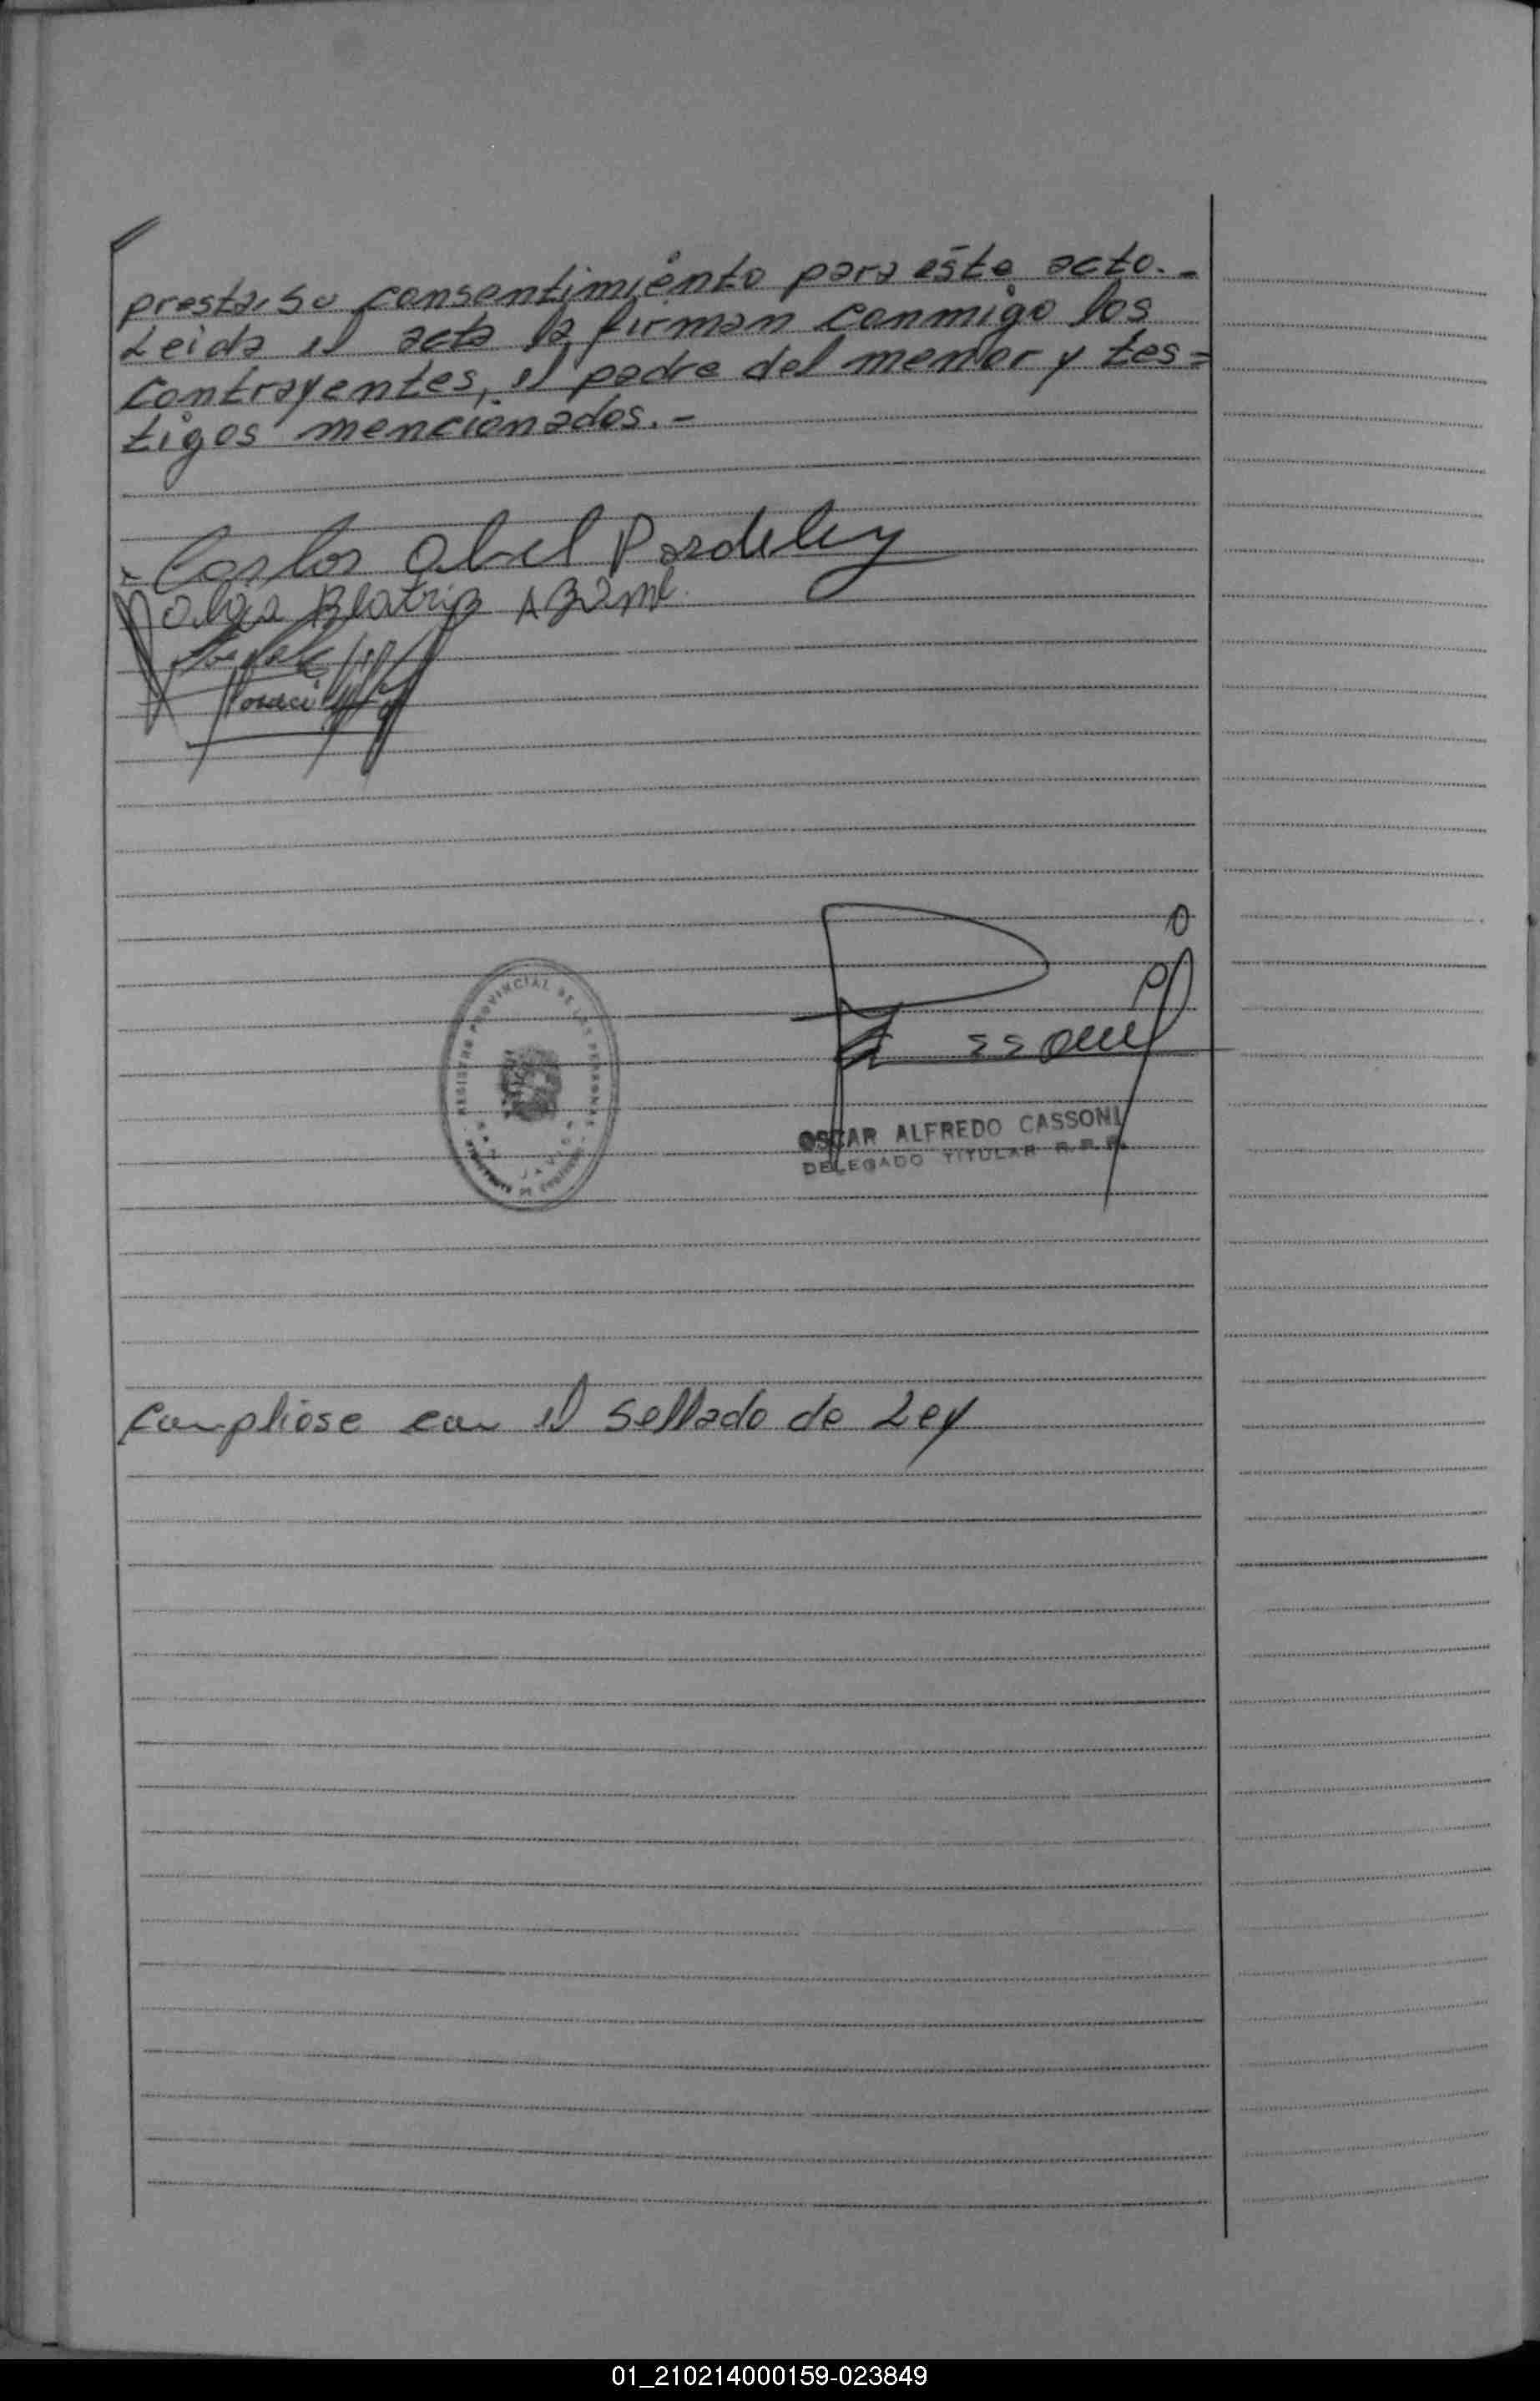 prestar su consentimiento para este acto.-
Leida el acta la firman conmigo los
contrayentes, el padre del menor y tes=
tigos mencionados.-
Carlos Abel Pardeley
Beatriz
Horacio
REGISTRO PROVINCIAL DE LAS PERSONAS
OSCAR ALFREDO CASSONI
DELEGADO TITULAR R.P.P.
Cumpliose con el sellado de Ley
01_210214000159-023849